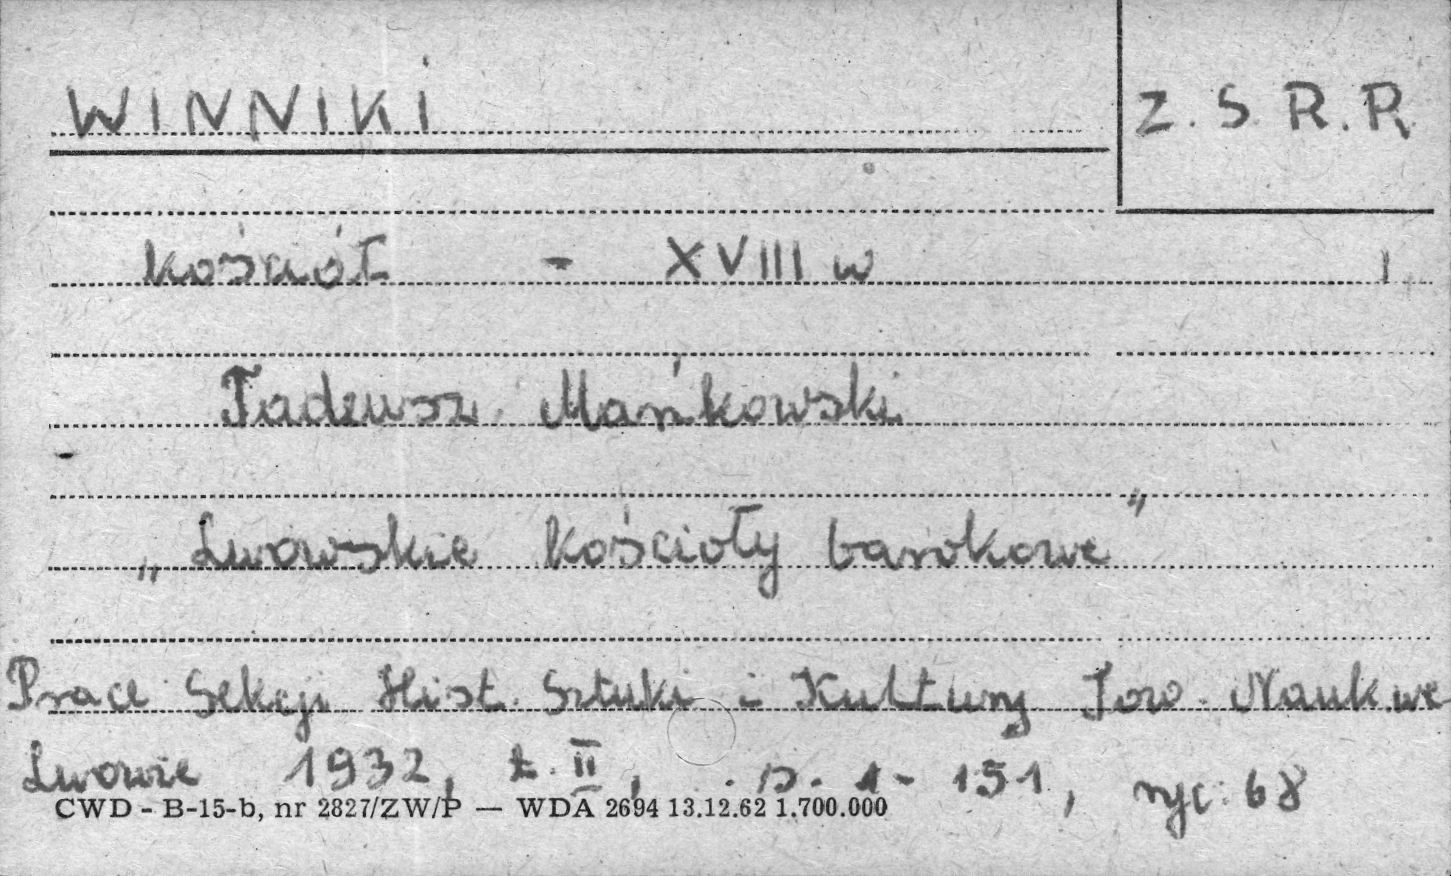 WINNIKI
Z. S. R. R.
Kościół - XVIII w 1
Tadeusz Mańkowski
„Lwowskie Kościoły barokowe"
Prace Sekcji Hist. Sztuki i Kultury Tow. Nauk. we
Lwowie 1932, t. II, s. 1-151, ryc. 68
CWD - B-15-b, nr 2827/ZW/P — WDA 2694 13.12.62 1.700.000